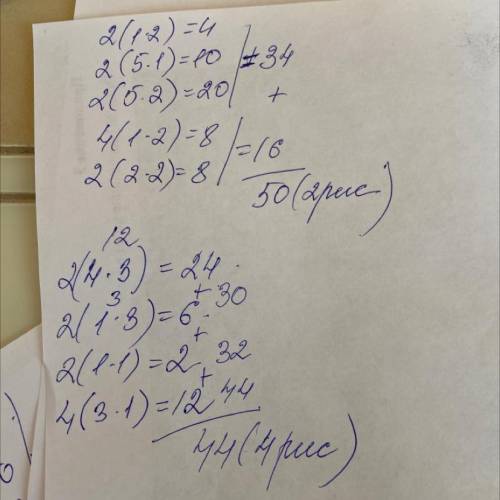 2(1·2)=4
2(5·1)=10 =34
2(5·2)=20 +
4(1·2)=8 =16
2(2·2)=8
50(2рис)
12
2(4·3)=24
3 +30
2(1·3)=6
+
2(1·1)=2 32
+
4(3·1)=12 44
44(4рис)